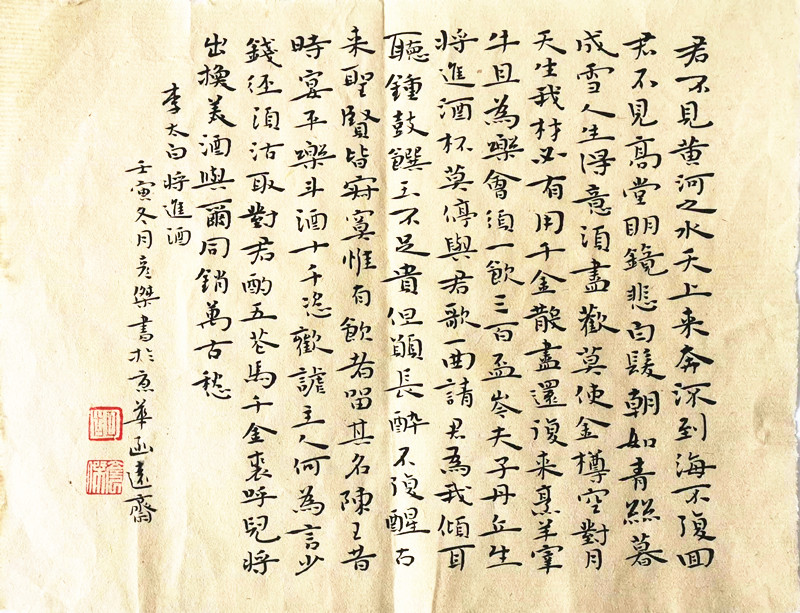 君不見黃河之水天上来奔流到海不復回
君不見高堂明鏡悲白髮朝如青絲暮
成雪人生得意須盡歡莫使金樽空對月
天生我材必有用千金散盡還復来烹羊宰
牛且為樂會須一飲三百盃岑夫子丹丘生
將進酒杯莫停與君歌一曲請君為我傾耳
聽鍾鼓饌玉不足貴但願長醉不復醒古
来聖賢皆寂寞惟有飲者留其名陳王昔
時宴平樂斗酒十千恣歡謔主人何為言少
錢徑須沽取對君酌五花馬千金裘呼兒將
出換美酒與爾同銷萬古愁
李太白將進酒
壬寅冬月彦傑書於京華函遠齋